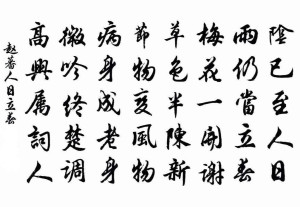 陰已至人日
雨仍當立春
梅花一開謝
草色半陳新
節物變風物
病身成老身
微吟終楚調
高興属詞人
趙蕃人日立春